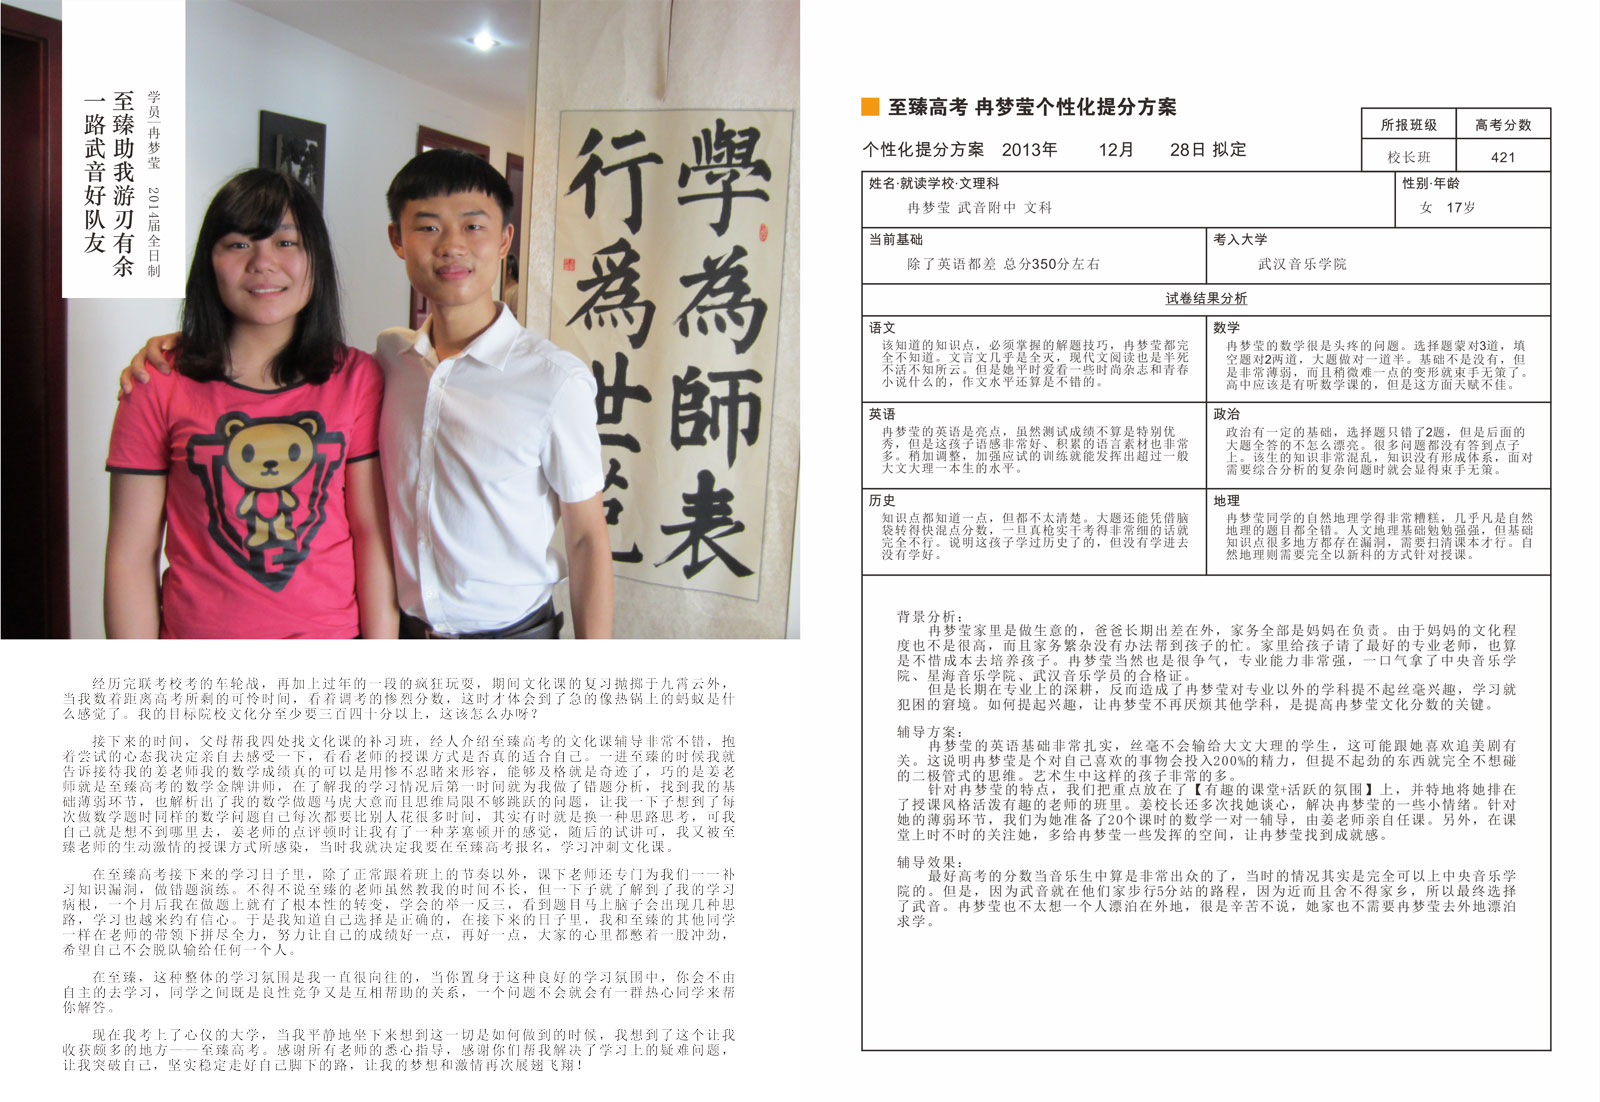 学员|冉梦莹 2014届全日制
至臻助我游刃有余
一路武音好队友
學為師表
行為世范
经历完联考校考的车轮战，再加上过年的一段的疯狂玩耍，期间文化课的复习抛掷于九霄云外，
当我数着距离高考所剩的可怜时间，看着调考的惨烈分数，这时才体会到了急的像热锅上的蚂蚁是什
么感觉了。我的目标院校文化分至少要三百四十分以上，这该怎么办呀？
接下来的时间，父母帮我四处找文化课的补习班，经人介绍至臻高考的文化课辅导非常不错，抱
着尝试的心态我决定亲自去感受一下，看看老师的授课方式是否真的适合自己。一进至臻的时候我就
告诉接待我的姜老师我的数学成绩真的可以是用惨不忍睹来形容，能够及格就是奇迹了，巧的是姜老
师就是至臻高考的数学金牌讲师，在了解我的学习情况后第一时间就为我做了错题分析，找到我的基
础薄弱环节，也解析出了我的数学做题马虎大意而且思维局限不够跳跃的问题，让我一下子想到了每
次做数学题时同样的数学问题自己每次都要比别人花很多时间，其实有时就是换一种思路思考，可我
自己就是想不到哪里去，姜老师的点评顿时让我有了一种茅塞顿开的感觉，随后的试讲可，我又被至
臻老师的生动激情的授课方式所感染，当时我就决定我要在至臻高考报名，学习冲刺文化课。
在至臻高考接下来的学习日子里，除了正常跟着班上的节奏以外，课下老师还专门为我们一一补
习知识漏洞，做错题演练。不得不说至臻的老师虽然教我的时间不长，但一下子就了解到了我的学习
病根，一个月后我在做题上就有了根本性的转变，学会的举一反三，看到题目马上脑子会出现几种思
路，学习也越来约有信心。于是我知道自己选择是正确的，在接下来的日子里，我和至臻的其他同学
一样在老师的带领下拼尽全力，努力让自己的成绩好一点，再好一点，大家的心里都憋着一股冲劲，
希望自己不会脱队输给任何一个人。
在至臻，这种整体的学习氛围是我一直很向往的，当你置身于这种良好的学习氛围中，你会不由
自主的去学习，同学之间既是良性竞争又是互相帮助的关系，一个问题不会就会有一群热心同学来帮
你解答。
现在我考上了心仪的大学，当我平静地坐下来想到这一切是如何做到的时候，我想到了这个让我
收获颇多的地方——至臻高考。感谢所有老师的悉心指导，感谢你们帮我解决了学习上的疑难问题，
让我突破自己，坚实稳定走好自己脚下的路，让我的梦想和激情再次展翅飞翔！
至臻高考 冉梦莹个性化提分方案
个性化提分方案 2013年 12月 28日 拟定
所报班级 高考分数
校长班 421
姓名·就读学校·文理科
冉梦莹 武音附中 文科
性别·年龄
女 17岁
当前基础
除了英语都差 总分350分左右
考入大学
武汉音乐学院
试卷结果分析
语文
该知道的知识点，必须掌握的解题技巧，冉梦莹都完
全不知道。文言文几乎是全灭，现代文阅读也是半死
不活不知所云。但是她平时爱看一些时尚杂志和青春
小说什么的，作文水平还算是不错的。
数学
冉梦莹的数学很是头疼的问题。选择题蒙对3道，填
空题对2两道，大题做对一道半。基础不是没有，但
是非常薄弱，而且稍微难一点的变形就束手无策了。
高中应该是有听数学课的，但是这方面天赋不佳。
英语
冉梦莹的英语是亮点，虽然测试成绩不算是特别优
秀，但是这孩子语感非常好、积累的语言素材也非常
多。稍加调整，加强应试的训练就能发挥出超过一般
大文大理一本生的水平。
政治
政治有一定的基础，选择题只错了2题，但是后面的
大题全答的不怎么漂亮。很多问题都没有答到点子
上。该生的知识非常混乱，知识没有形成体系，面对
需要综合分析的复杂问题时就会显得束手无策。
历史
知识点都知道一点，但都不太清楚。大题还能凭借脑
袋转得快混点分数，一旦真枪实干考得非常细的话就
完全不行。说明这孩子学过历史了的，但没有学进去
没有学好。
地理
冉梦莹同学的自然地理学得非常糟糕，几乎凡是自然
地理的题目都全错。人文地理基础勉勉强强，但基础
知识点很多地方都存在漏洞，需要扫清课本才行。自
然地理则需要完全以新科的方式针对授课。
背景分析：
冉梦莹家里是做生意的，爸爸长期出差在外，家务全部是妈妈在负责。由于妈妈的文化程
度也不是很高，而且家务繁杂没有办法帮到孩子的忙。家里给孩子请了最好的专业老师，也算
是不惜成本去培养孩子。冉梦莹当然也是很争气，专业能力非常强，一口气拿了中央音乐学
院、星海音乐学院、武汉音乐学员的合格证。
但是长期在专业上的深耕，反而造成了冉梦莹对专业以外的学科提不起丝毫兴趣，学习就
犯困的窘境。如何提起兴趣，让冉梦莹不再厌烦其他学科，是提高冉梦莹文化分数的关键。
辅导方案：
冉梦莹的英语基础非常扎实，丝毫不会输给大文大理的学生，这可能跟她喜欢追美剧有
关。这说明冉梦莹是个对自己喜欢的事物会投入200%的精力，但提不起劲的东西就完全不想碰
的二极管式的思维。艺术生中这样的孩子非常的多。
针对冉梦莹的特点，我们把重点放在了【有趣的课堂+活跃的氛围】上，并特地将她排在
了授课风格活泼有趣的老师的班里。姜校长还多次找她谈心，解决冉梦莹的一些小情绪。针对
她的薄弱环节，我们为她准备了20个课时的数学一对一辅导，由姜老师亲自任课。另外，在课
堂上时不时的关注她，多给冉梦莹一些发挥的空间，让冉梦莹找到成就感。
辅导效果：
最好高考的分数当音乐生中算是非常出众的了，当时的情况其实是完全可以上中央音乐学
院的。但是，因为武音就在他们家步行5分站的路程，因为近而且舍不得家乡，所以最终选择
了武音。冉梦莹也不太想一个人漂泊在外地，很是辛苦不说，她家也不需要冉梦莹去外地漂泊
求学。